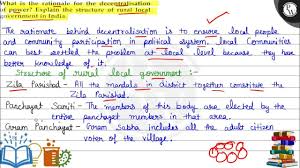 What is the rationale for the decentralisation
of power? Explain the structure of rural local
government in India.
The rationale behind decentralisation is to ensure local people
and community participation in political system, local Communities
can best settled the problem at local level because, they have
better knowledge of it.
Structure of rural local government :-
Zila Parishad - All the mandals in district together constitute the
Zila Parishad.
Panchayat Samiti - The members of this body are elected by the
entire panchayat members in that area.
Gram Panchayat - Gram Sabha includes all the adult citizen
voter of the village.